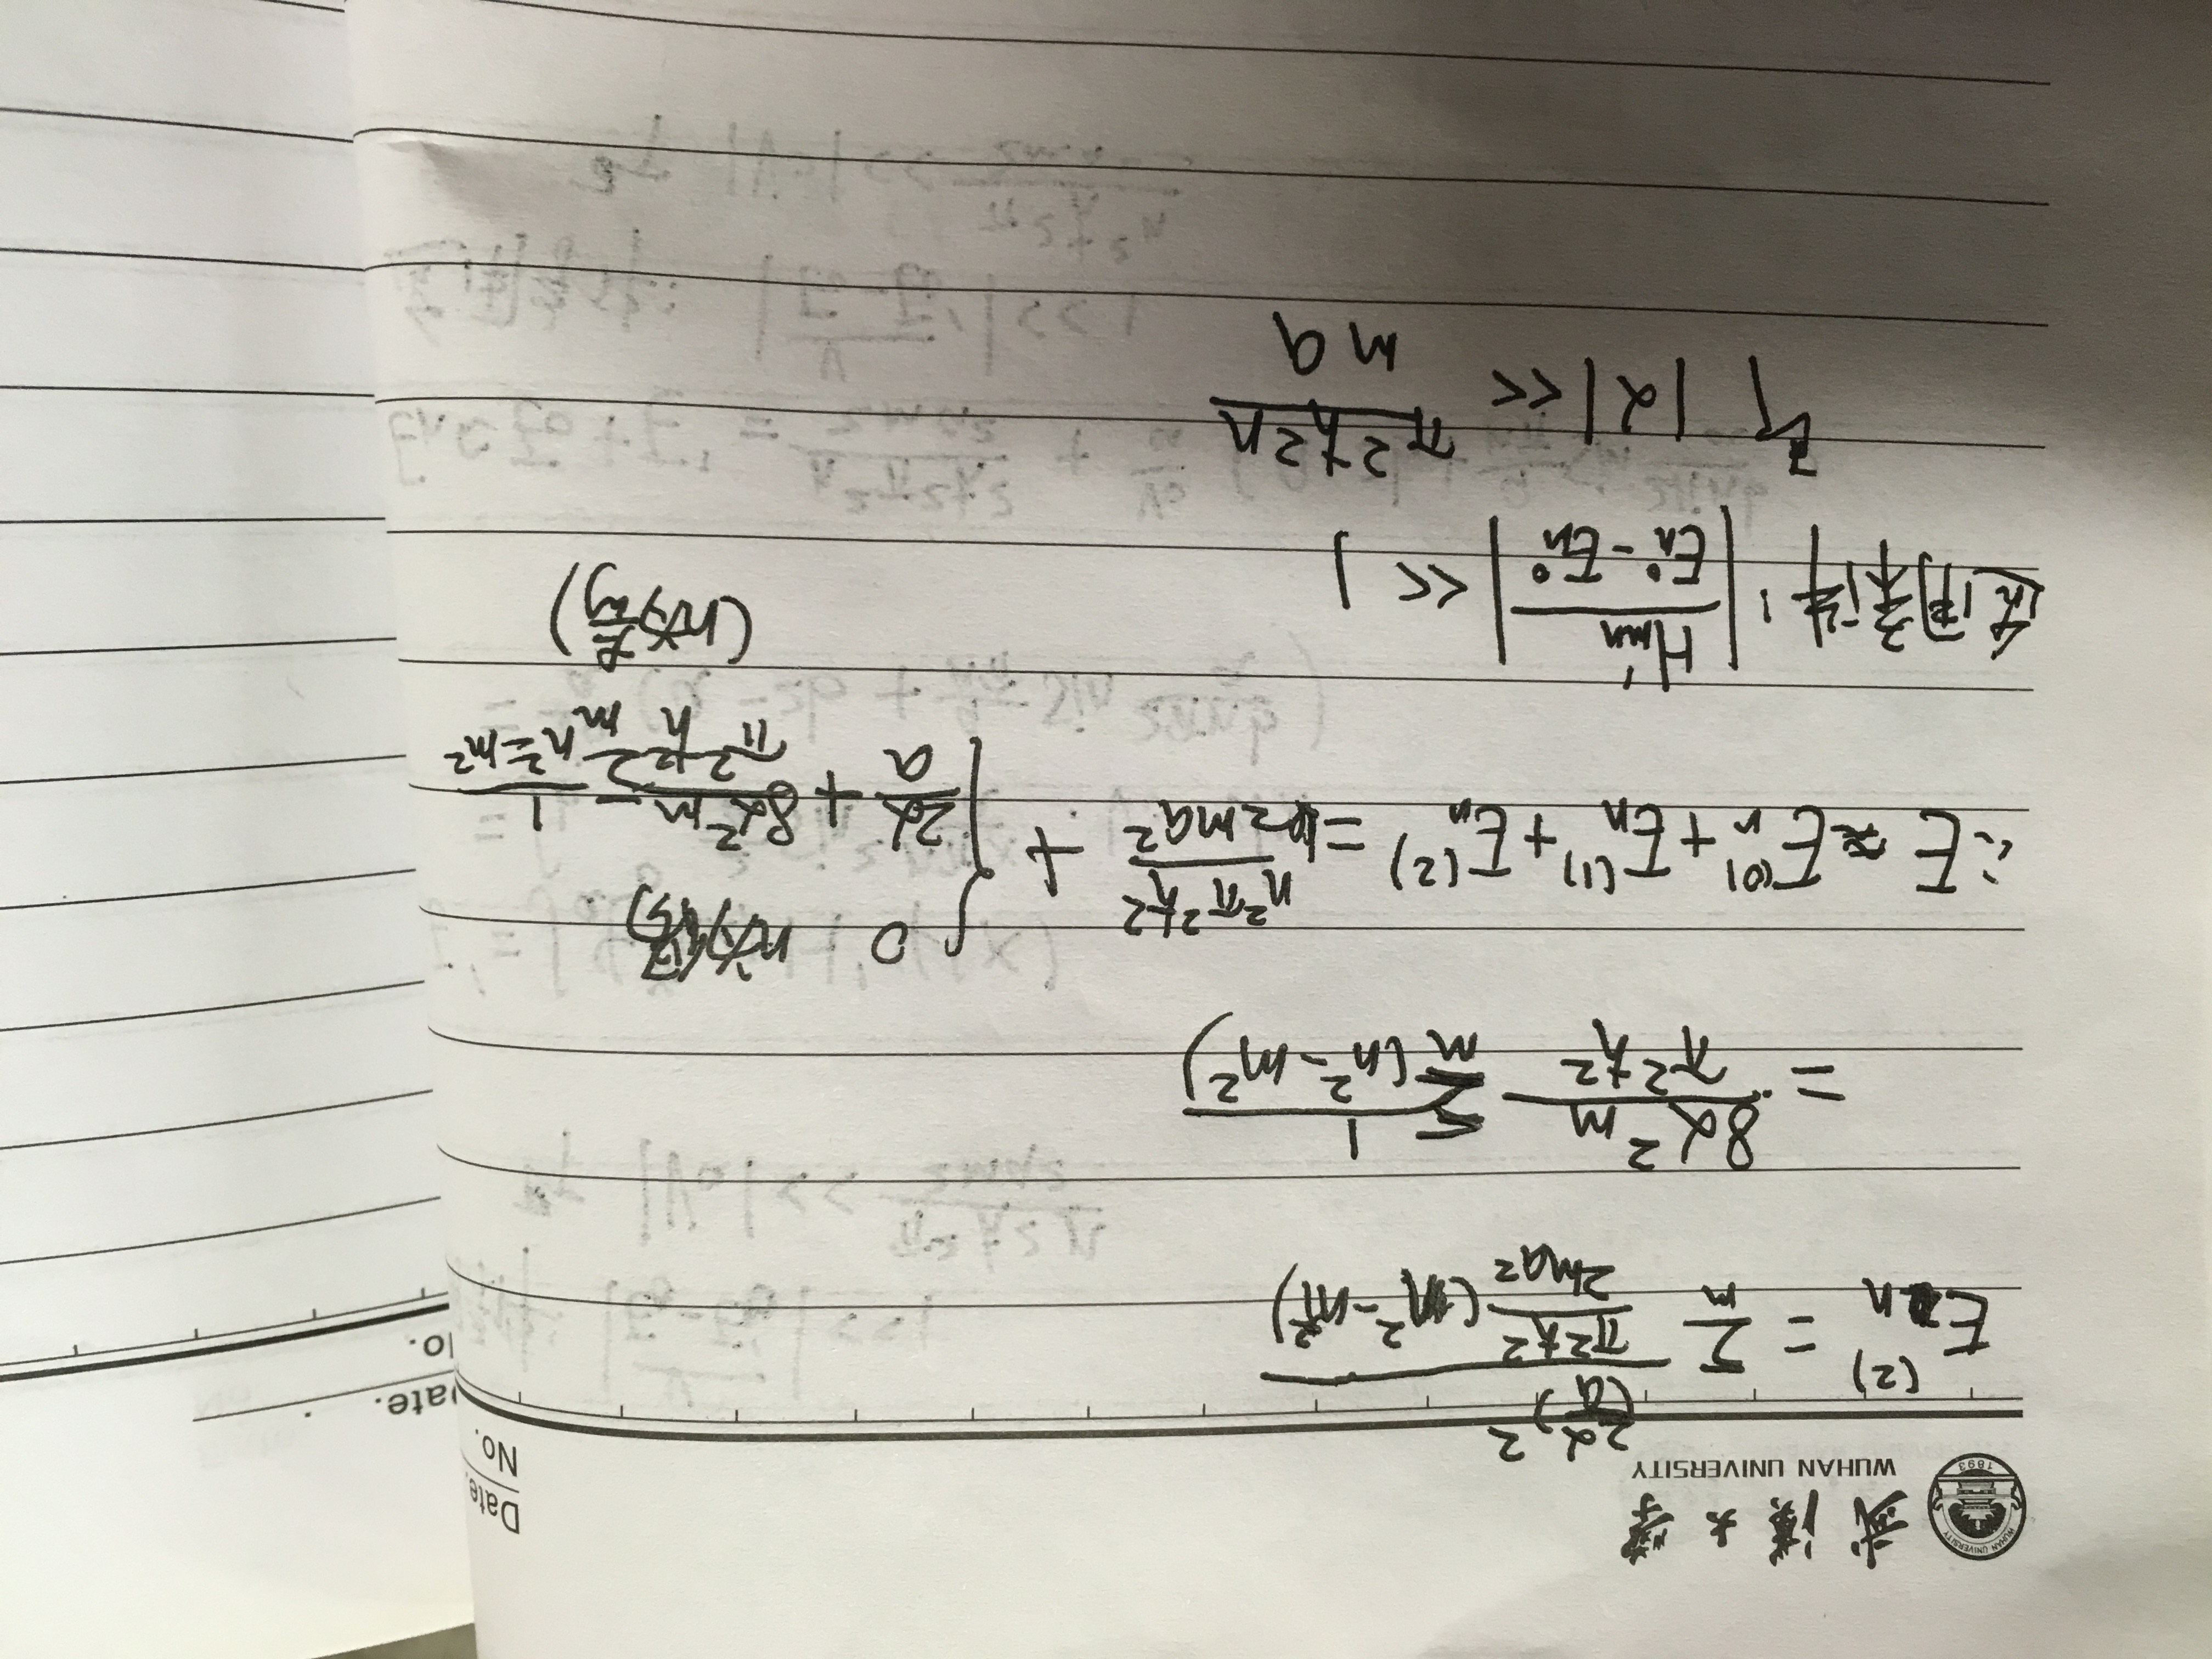 武漢大學
WUHAN UNIVERSITY
WUHAN UNIVERSITY
1893
Date.
No.
Date.
No.
E_n^(2) = Σ_m (2α/a)^2 / (π^2ħ^2/2ma^2 (n^2-m^2))
= 8α^2m/π^2ħ^2 Σ_m 1/(n^2-m^2)
∴ E ≈ E_n^(0) + E_n^(1) + E_n^(2) = n^2π^2ħ^2/2ma^2 + { 0 n为偶
2α/a + 8α^2m/π^2ħ^2 Σ_m 1/n^2-m^2
(n为奇)
适用条件: |H'mn/E_n^0-E_m^0| << 1
即 |α| << π^2ħ^2n/ma